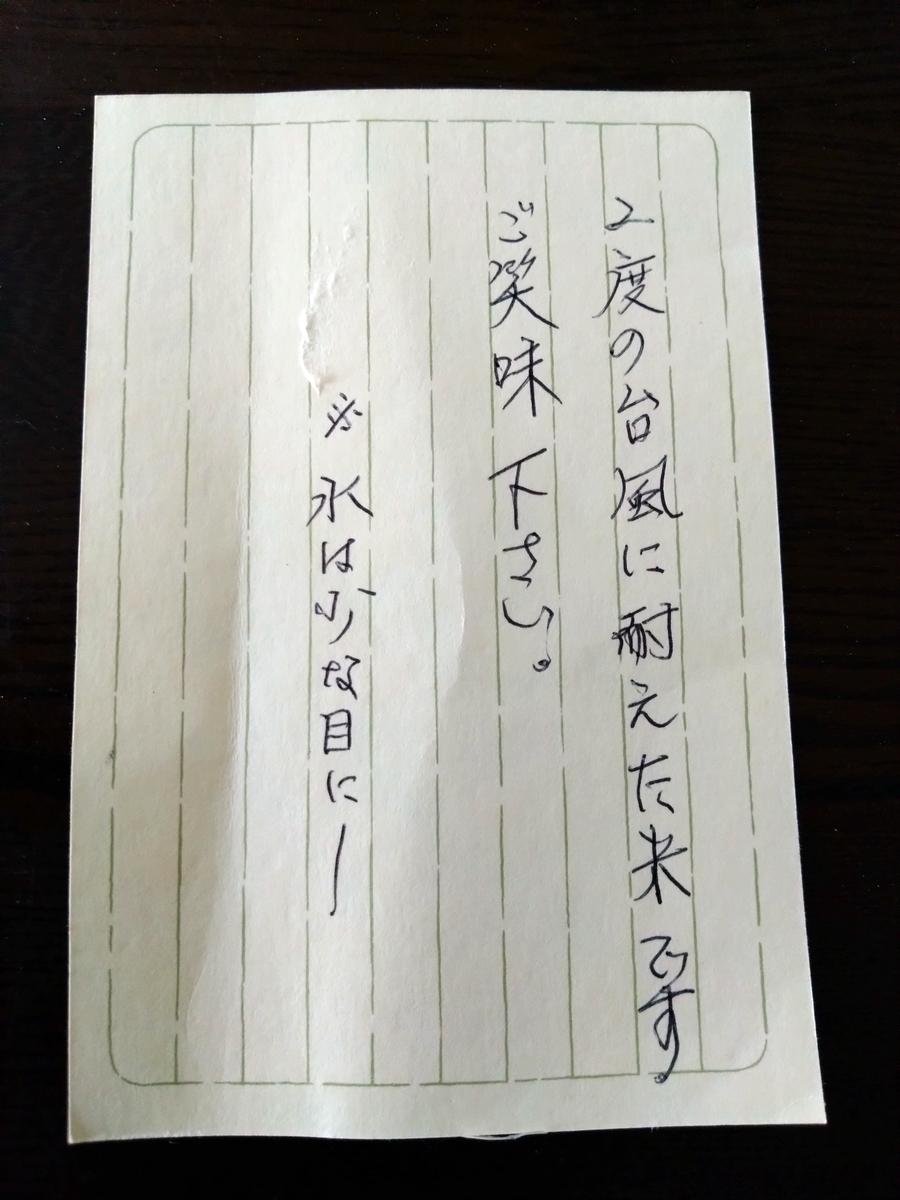 2度の台風に耐えた米です。
ご笑味下さい。
※水は少な目にー